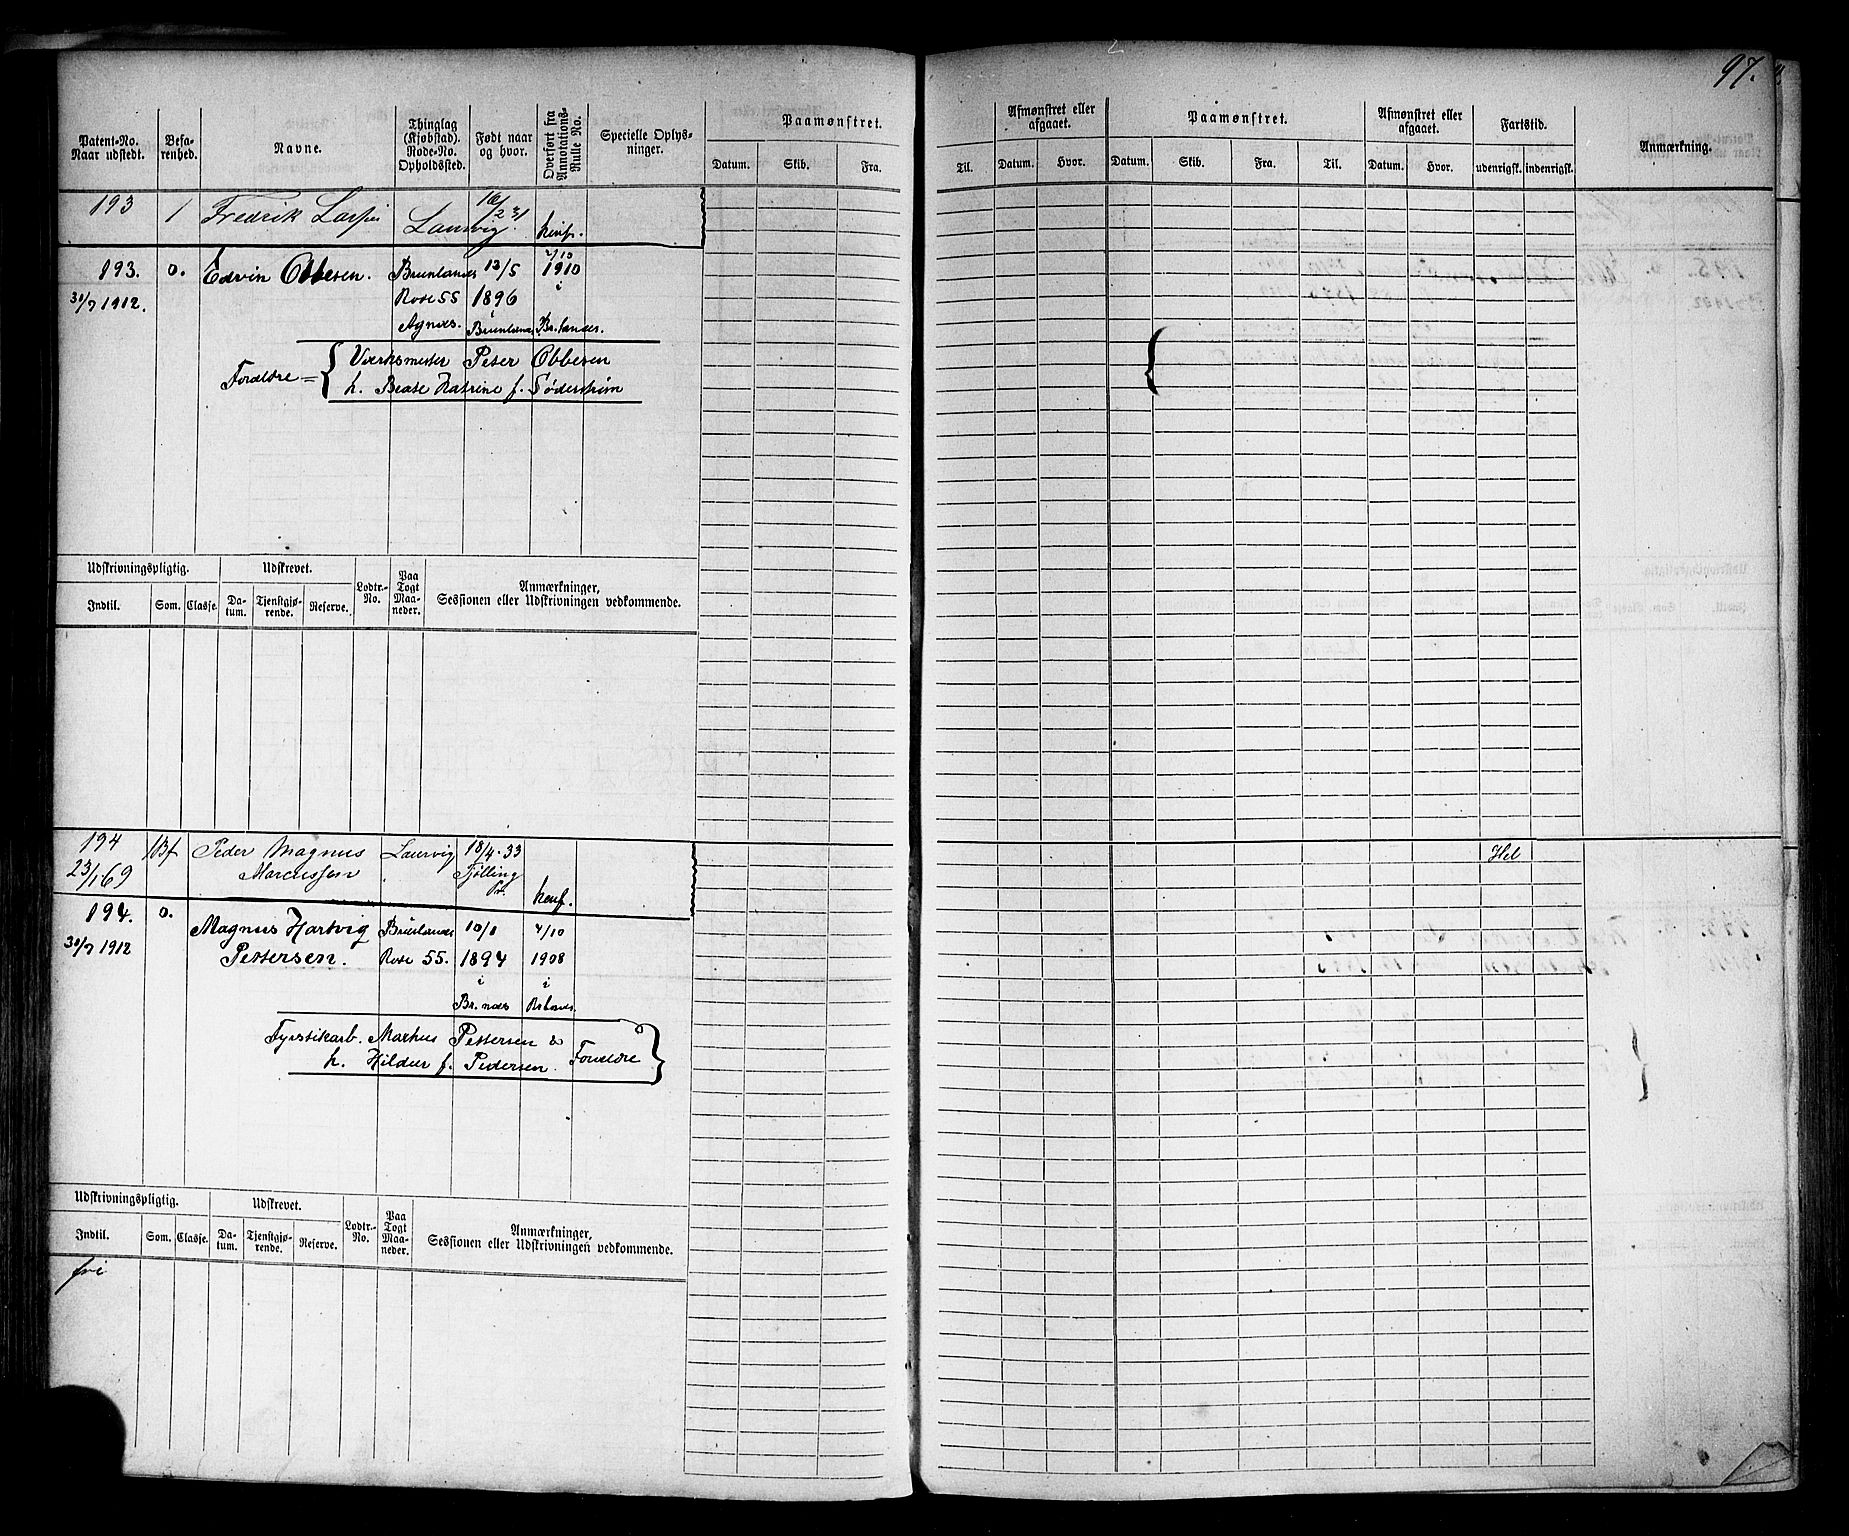 97.
Patent-No. Naar udstedt.
Befarenhed.
Navne.
Thinglag (Kjøbstad). Rode-No. Opholdssted.
Født naar og hvor.
Overført fra Annotations-Rulle No.
Specielle Oplysninger.
Paamønstret.
Datum. Skib. Fra.
Til.
Afmønstret eller afgaaet.
Datum. Hvor.
Paamønstret.
Datum. Skib. Fra. Til.
Afmønstret eller afgaaet.
Datum. Hvor.
Fartstid.
udenrigsk. indenrigsk.
Anmærkning.
193 1 Fredrik Laurvig 16/2 31
193. 0. Edvin Obbesen. Brunlanes 13/5 7/10 1910
31/7 1912. Rode 55 1896 i
Agnæs. i Brunlanes Br.lanæs.
Forældre = { Værksmester Peter Obbesen
h. Beate Katrine f. Söderström
Udskrivningspligtig. Udskrevet. Lodtr.-No. Paa Togt Maaneder. Anmærkninger, Sessionen eller Udskrivningen vedkommende.
Indtil. Som. Classe. Datum. Tjenstgjørende. Reserve.
194 1Bf Peder Magnus Laurvig 18/4-33 Hel
23/1 69 Marcussen Tjølling Pr.
194. 0. Magnus Hartvig Brunlanes 10/1 7/10
31/7 1912 Pettersen. Rode 55. 1894 1908
i i
Br.næs Br.lanæs
Fyrstikarb. Markus Pettersen &
h. Hilda f. Pedersen. Forældre }
Udskrivningspligtig. Udskrevet. Lodtr.-No. Paa Togt Maaneder. Anmærkninger, Sessionen eller Udskrivningen vedkommende.
Indtil. Som. Classe. Datum. Tjenstgjørende. Reserve.
fri